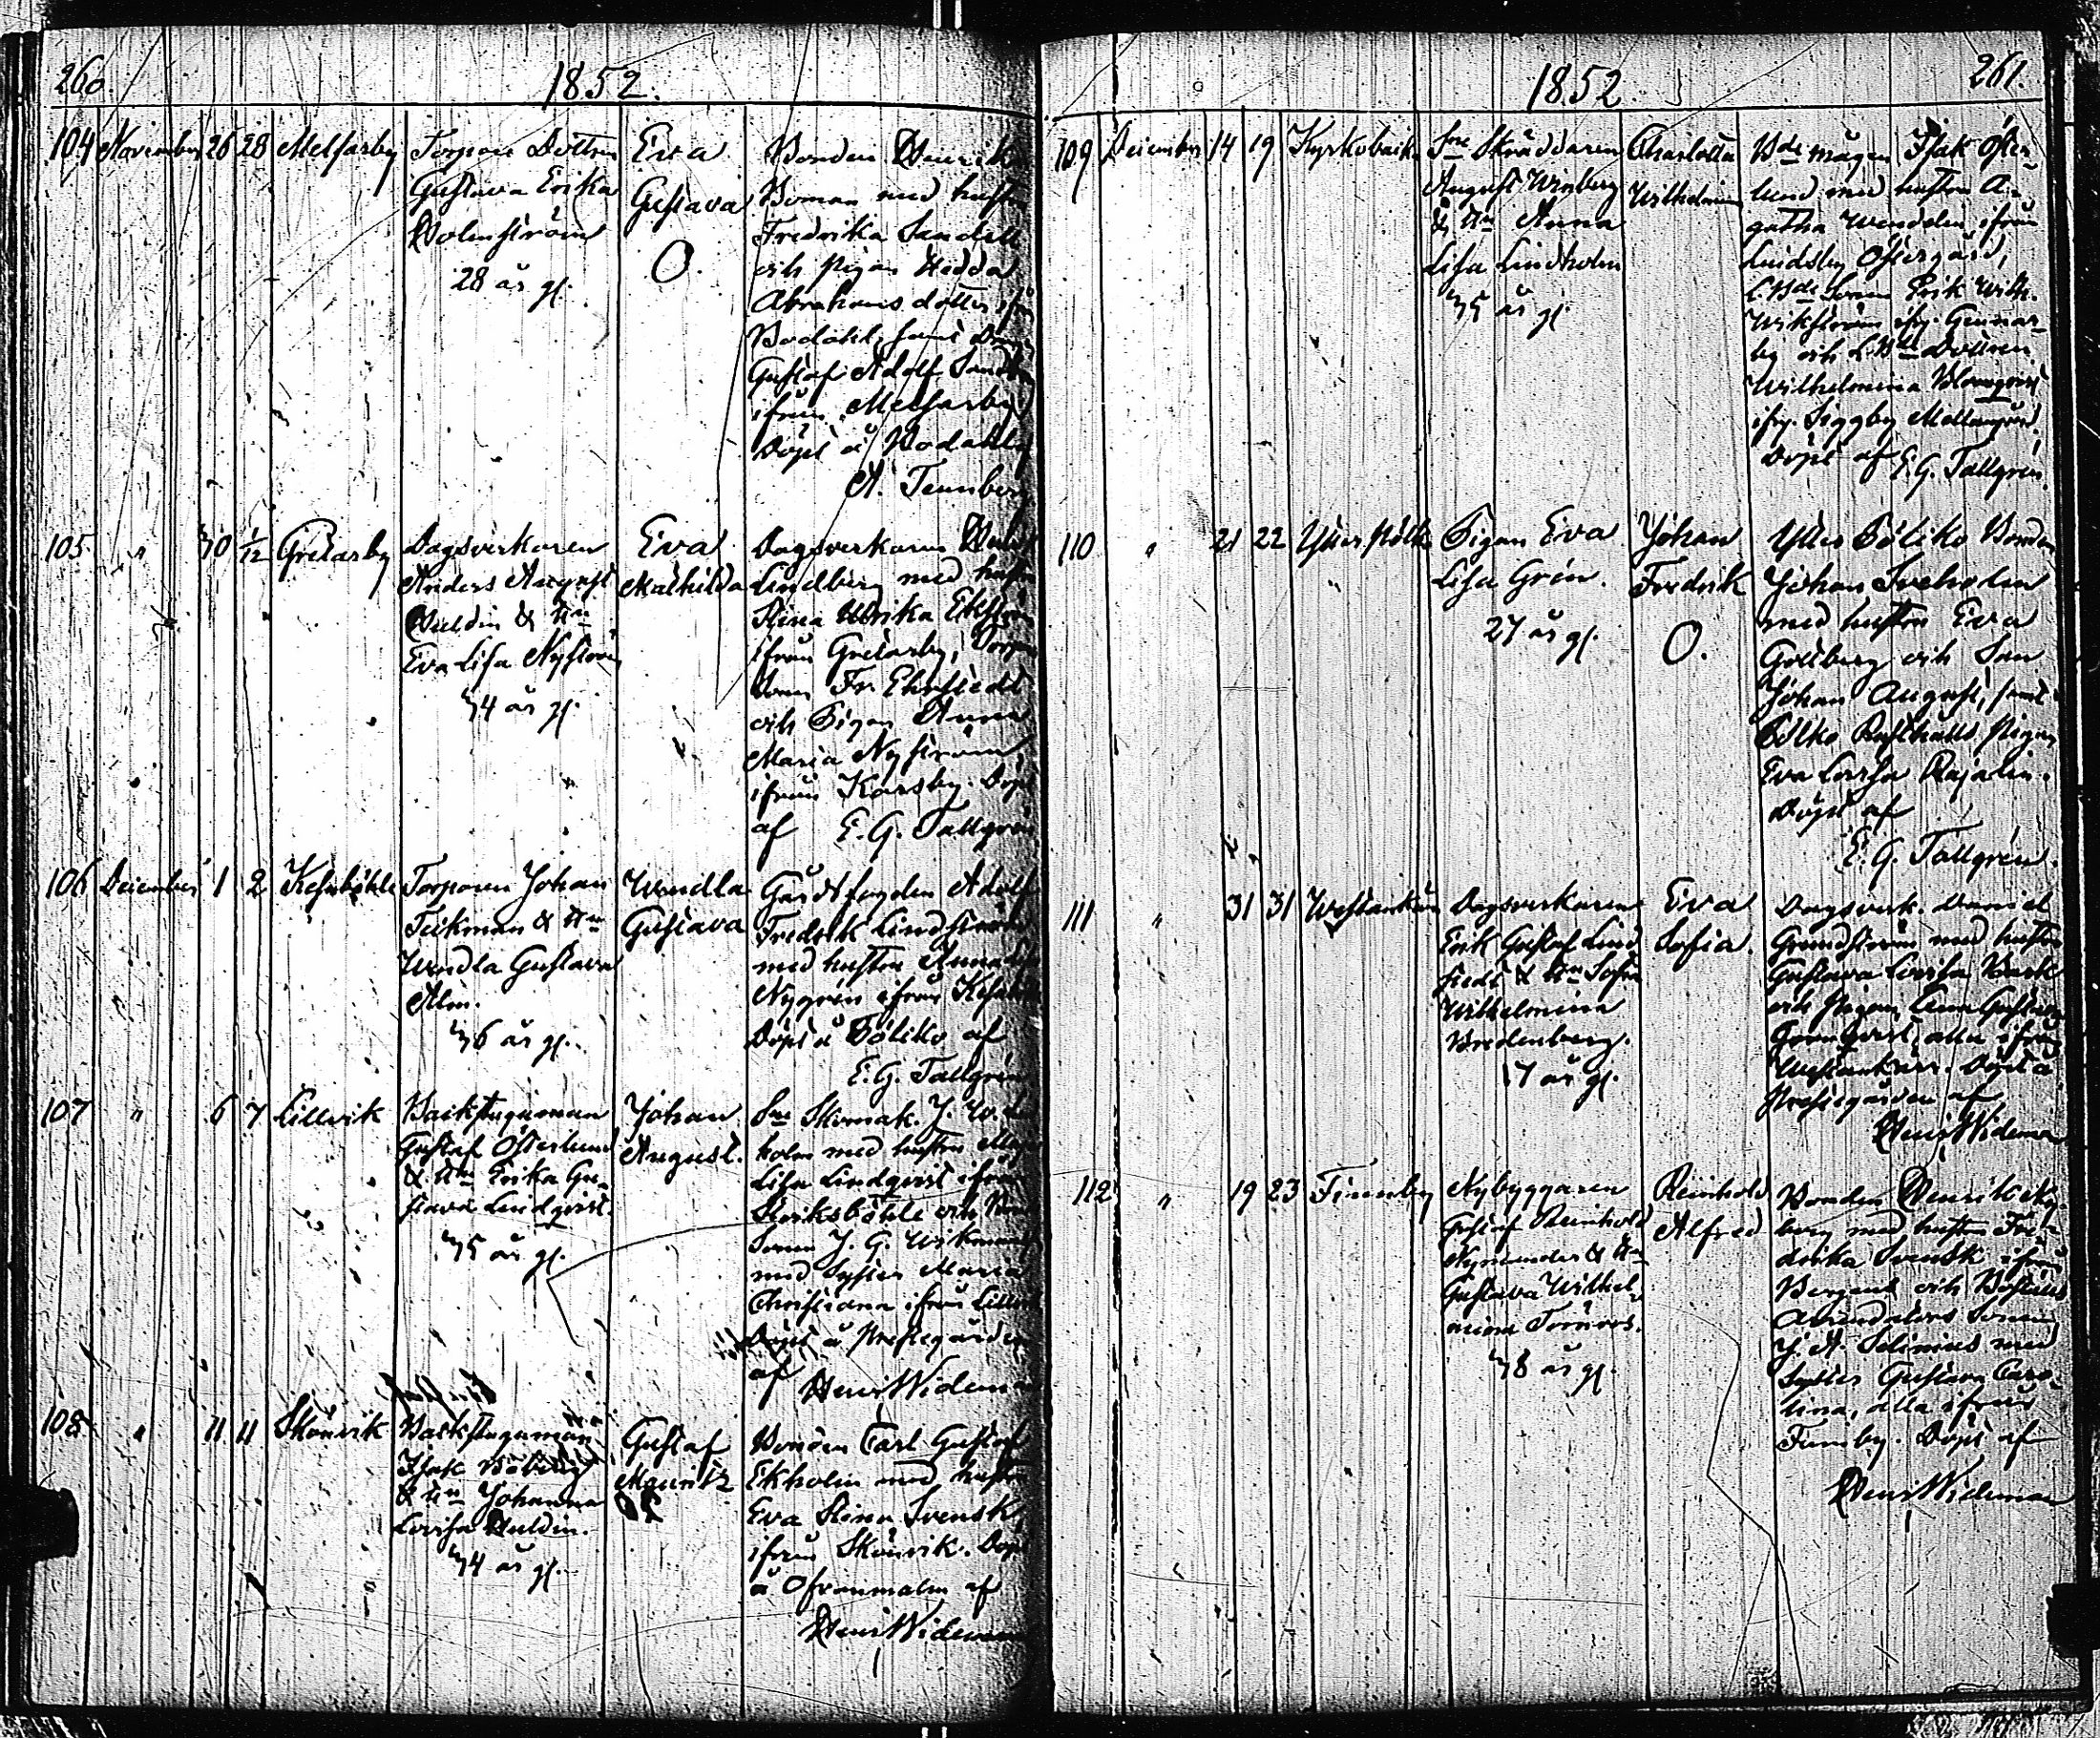 260.
1852.
104 November 26 28 Melsarby
Torpare Dottren
Gustava Erika
Holmström
28 år gl.
Eva
Gustava
O.
Bonden Henrik
Boman med hustru
Fredrika Sandell
och Pigan Hedda
Abrahams dotter
Bodahl, samt
Gustaf Adolf
ifrån Melsarby
Döpt å Bodahl
A. Tennberg
105 " 30 1/12 Gretarby
Dagsverkaren
Anders August
Huldin & Hn
Eva Lisa Nyström
34 år gl.
Eva
Mathilda
Dagsverkaren
Lindberg med hustru
Stina Ulrika Ekström
ifrån Gretarby,
Fr. Ehrstedt
och Pigan Anna
Maria Nyström
ifrån Karsby. Döpt
af E. G. Tallgrén
106 December 1 2
Torparen Johan
Tickman & Hn
Wendla Gustava
Alm.
36 år gl.
Wendla
Gustava
Gårdsfogden Adolf
Fredrik Lindström
med hustru Anna
Nygrén ifrån
Döpt å Böliko af
E. G. Tallgrén
107 " 6 7 Lillvik
Backstuguman
Gustaf Österlund
& Hn Erika Gu-
stava Lindqvist.
35 år gl.
Johan
August.
Sne Skomak. J. W.
holm med hustru
Lisa Lindqvist ifrån
och
Sonen J. G. Wikman
med Syster Maria
Christiana ifrån Lillvik
Döpt å Prestegården
af Henr Wideman
108 " 11 11 Skönvik
Backstuguman
Isak
& Hn Johanna
Lovisa Huldin.
34 år gl.
Gustaf
Mauritz
Bonden Carl Gustaf
Ekholm med hustru
Eva Stina Svensk,
ifrån Skönvik. Döpt
å Ofvanmalm af
Henr Wideman
1852
261.
109 December 14 19 Kyrkoback
Sne Skräddaren
August Winberg
& Hn Anna
Lisa Lindholm
35 år gl.
Charlotta
Wilhelmina
Bde mågen Isak Öster-
lund med hustru A-
gatha Wendelin ifrån
Lindsby Östergård,
L. Bde Sonen Erik Wilh.
Wikström ifr. Gunnar-
by och L. Bde Dottren
Wilhelmina Blomqvist
ifr. Siggby Mellangård.
Döpt af E. G. Tallgrén.
110 " 21 22 Ytter Pölko
Pigan Eva
Lisa Grén.
27 år gl.
Johan
Fredrik
O.
Ytter Böliko Bonden
Johan Tveholm
med hustru Eva
Gottberg och Son
Johan August, samt
Pigan
Eva Lovisa Rajalin.
Döpt af
E. G. Tallgrén.
111 " 31 31 Westankärr
Dagsverkaren
Erik Gustaf Lind-
stedt & Hn Sofia
Wilhelmina
Bredenberg.
17 år gl.
Eva
Sofia.
Dagsverk. Daniel
Grundström med hustru
Gustava Lovisa
och Pigan Anna Gustava
Grönqvist, alla ifrån
Westankärr. Döpt å
Prestegården af
Henr Wideman
112 " 19 23 Finnby
Nybyggaren
Gustaf Reinhold
Nymander & Hn
Gustava Wilhel-
mina Törnroos.
38 år gl.
Reinhold
Alfred
Bonden Henrik Ny-
berg med hustru Fre-
drika Svensk ifrån
och
Arrendators Sonen
J. A. Selinius med
Syster Gustava Caro-
lina, alla ifrån
Finnby. Döpt af
Henr Wideman